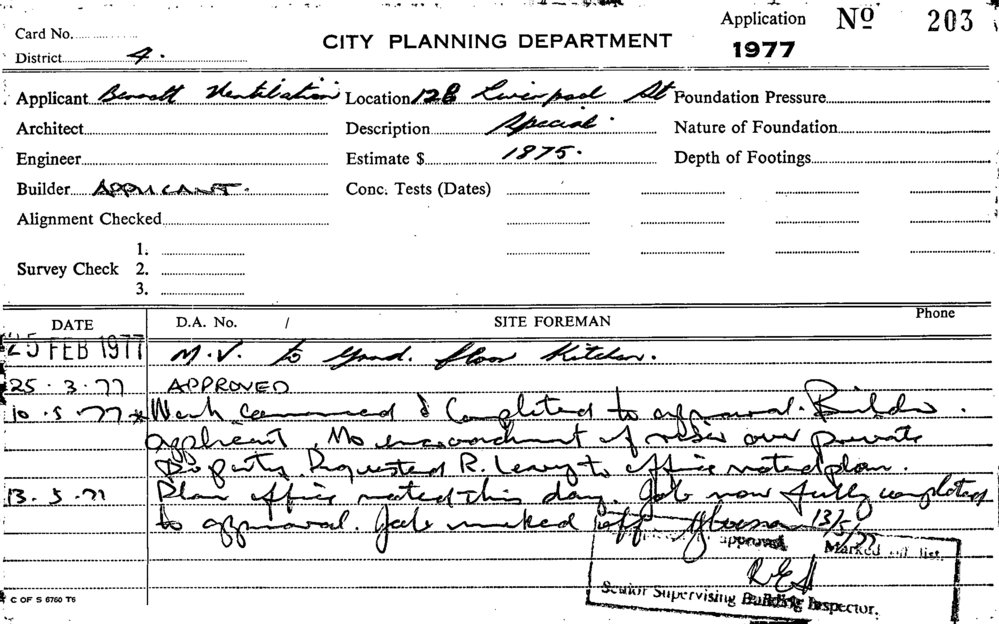 Card No.
Application No 203
CITY PLANNING DEPARTMENT
District 4.
1977
Applicant Bennett Ventilation Location 12B Liverpool St Foundation Pressure
Architect Description Special. Nature of Foundation
Engineer Estimate $ 1875. Depth of Footings
Builder APPLICANT. Conc. Tests (Dates)
Alignment Checked
1.
Survey Check 2.
3.
DATE D.A. No. / SITE FOREMAN Phone
25 FEB 1977 M.V. to Grnd. floor Kitchen.
25.3.77 APPROVED
10.5.77 * Work commenced & Completed to approval. Builder.
applicant. No encroachment of over private
Property. Requested R. Levy to office noted plan.
13.5.77 Plan office noted this day. Job now fully completed
to approval. Job marked off 13/5/77
approved Marked off list
Senior Supervising Building Inspector.
C OF S 6760 T6